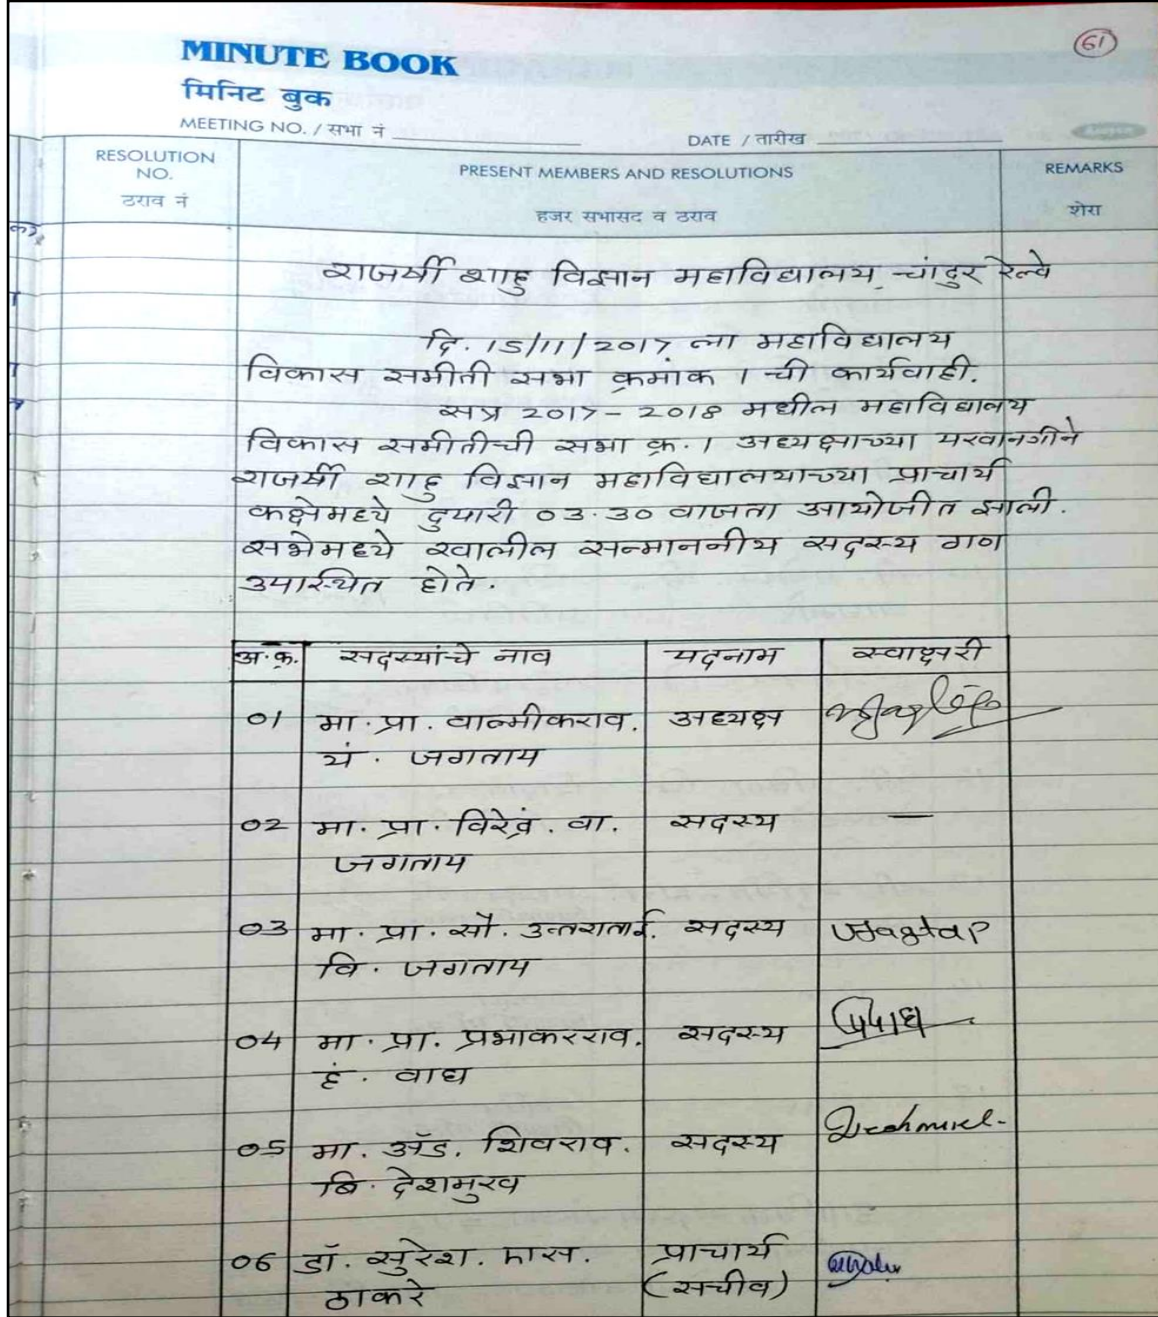 61
MINUTE BOOK
मिनिट बुक
MEETING NO. / सभा नं
DATE / तारीख
RESOLUTION NO.
ठराव नं
PRESENT MEMBERS AND RESOLUTIONS
हजर सभासद व ठराव
REMARKS
शेरा
राजर्षी शाहु विज्ञान महाविद्यालय, चांदुर रेल्वे
दि. 15/11/2017 ला महाविद्यालय
विकास समीती सभा क्रमांक 1 ची कार्यवाही.
सत्र 2017-2018 मधील महाविद्यालय
विकास समीतीची सभा क्र. 1 अध्यक्षाच्या परवानगीने
राजर्षी शाहु विज्ञान महाविद्यालयाच्या प्राचार्य
कक्षेमध्ये दुपारी 03.30 वाजता आयोजीत झाली.
सभेमध्ये खालील सन्माननीय सदस्य गण
उपास्थित होते.
अ.क्र. सदस्यांचे नाव पदनाम स्वाक्षरी
01 मा. प्रा. वाल्मीकराव. अध्यक्ष
पं. जगताप
02 मा. प्रा. विरेंद्र. वा. सदस्य —
जगताप
03 मा. प्रा. सौ. उत्तराताई. सदस्य VJagtap
वि. जगताप
04 मा. प्रा. प्रभाकरराव. सदस्य
हं. वाघ
05 मा. अ‍ॅड. शिवराव. सदस्य
बि. देशमुख
06 डॉ. सुरेश. एस. प्राचार्य
ठाकरे (सचीव)